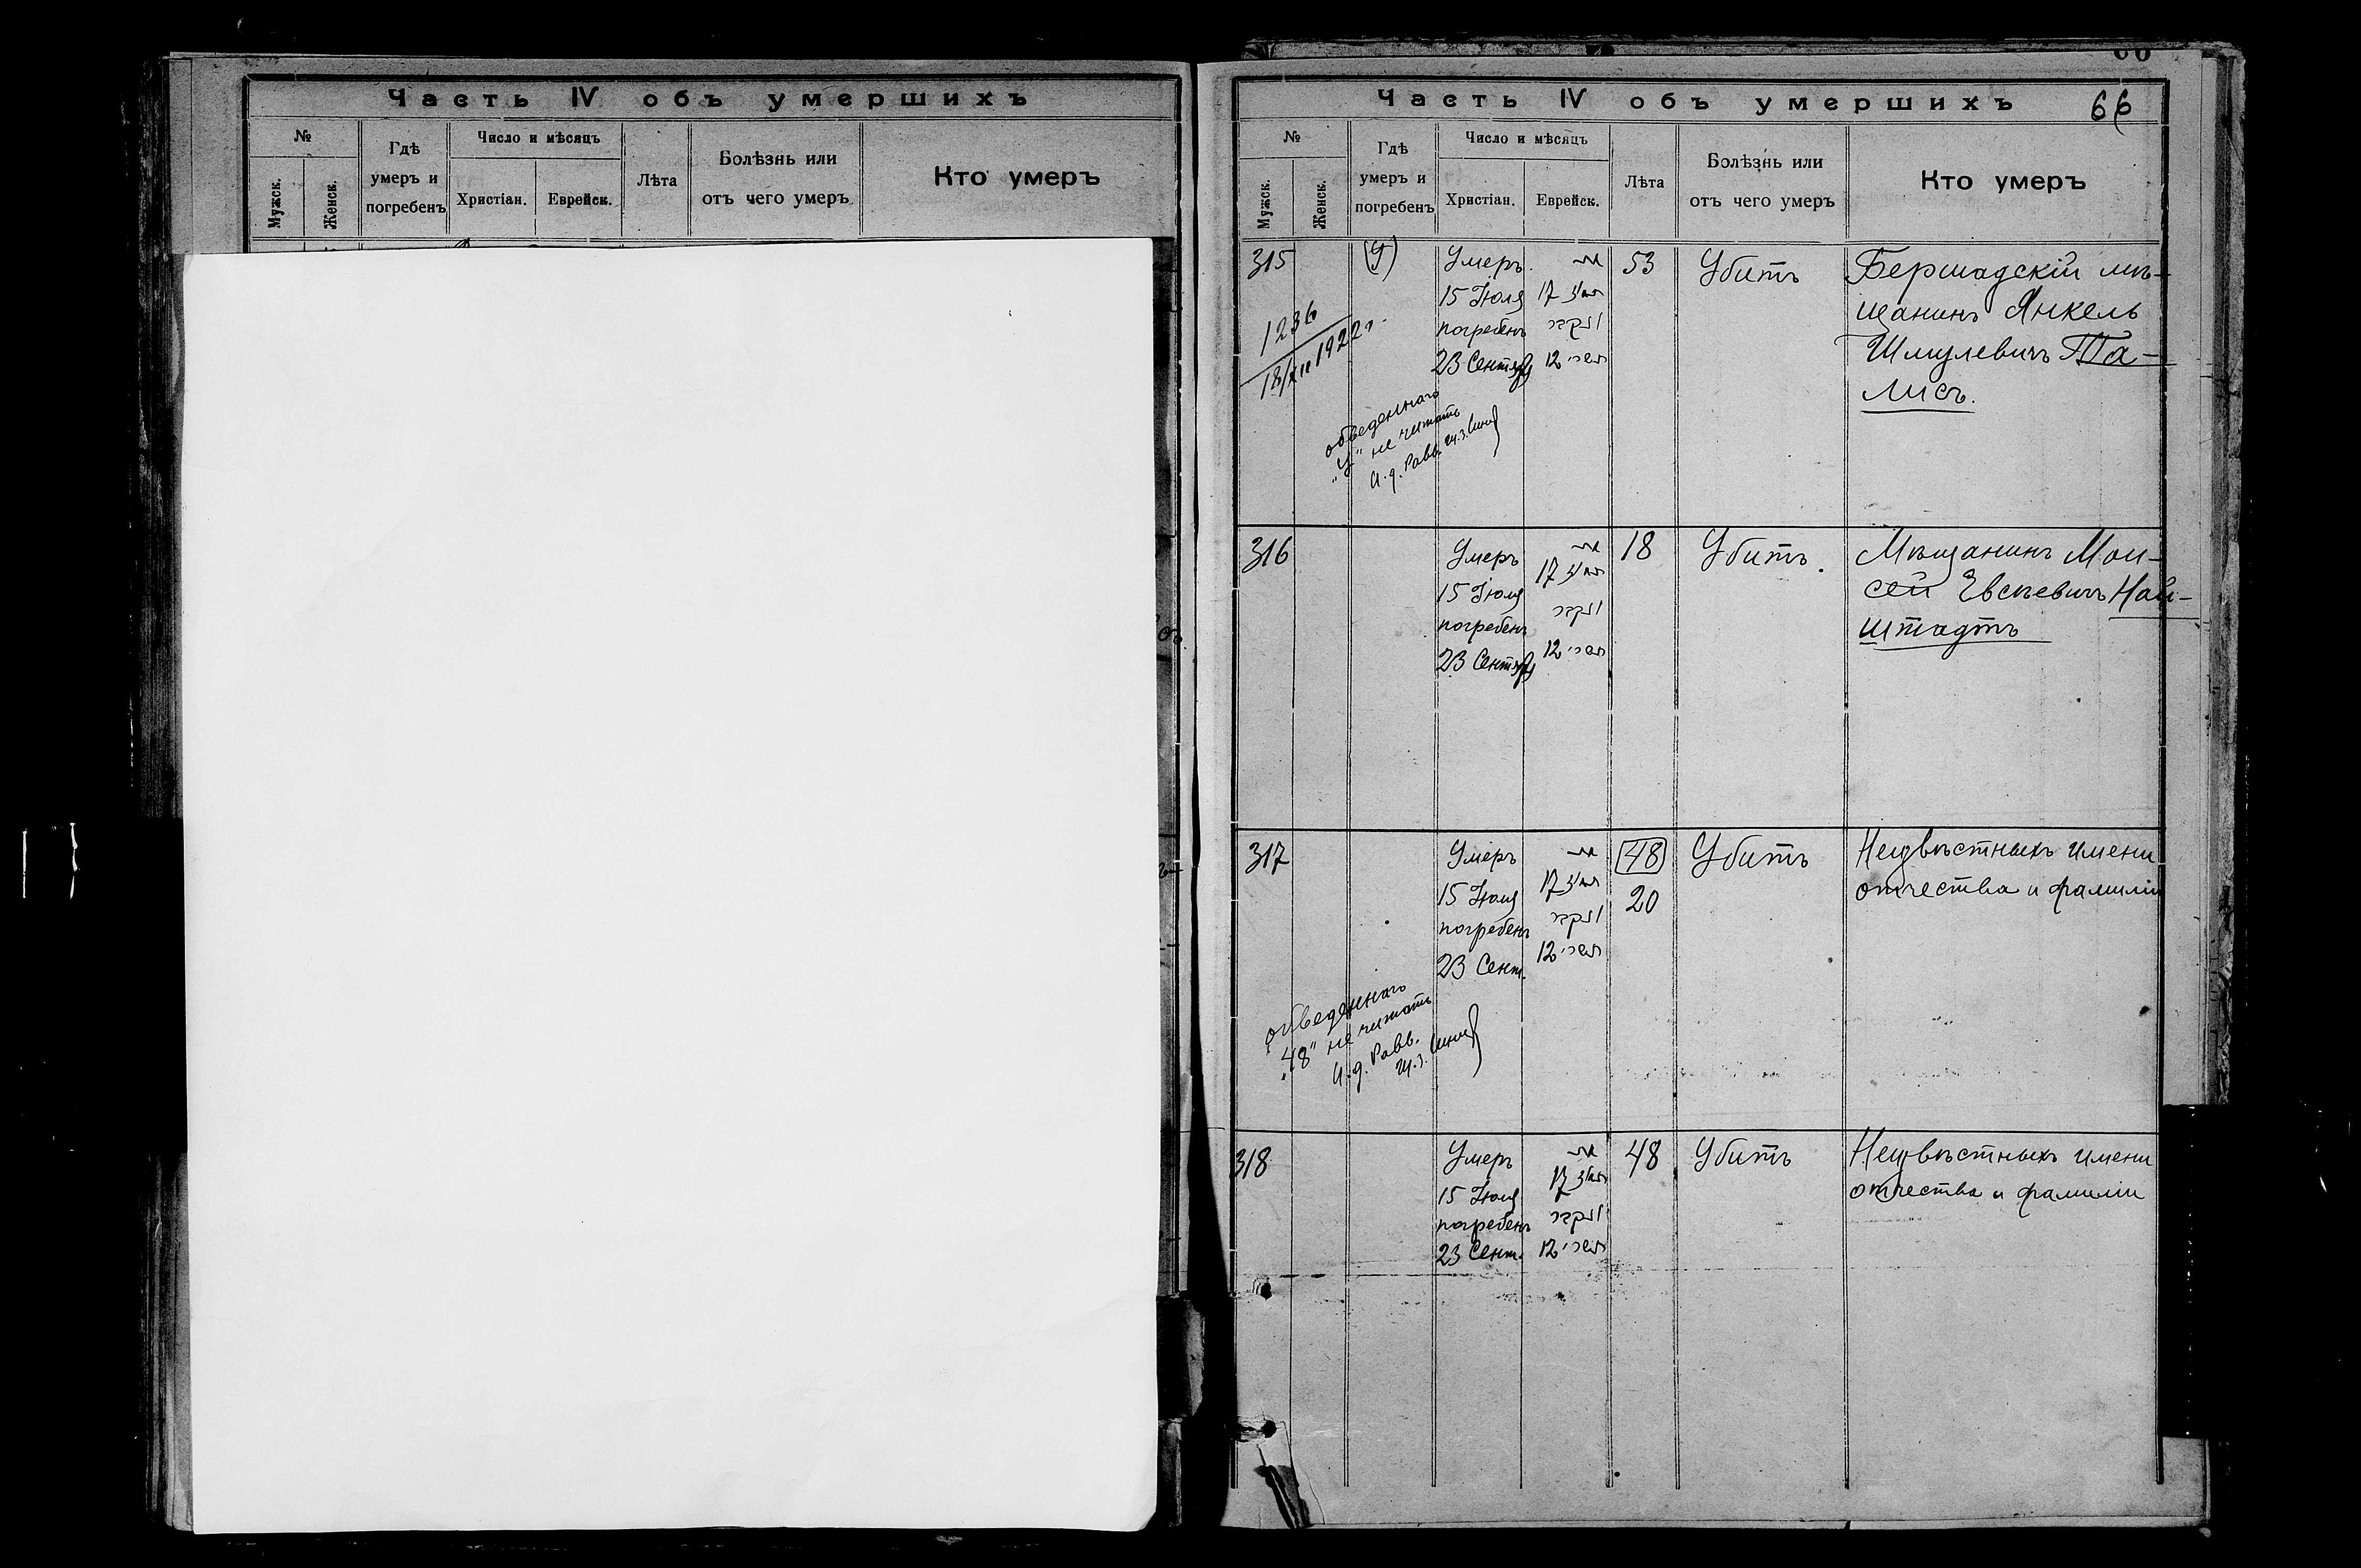 Часть IV объ умершихъ
№
Мужск.
Женск.
Гдѣ
умеръ и
погребенъ
Число и мѣсяцъ
Христіан.
Еврейск.
Лѣта
Болѣзнь или
отъ чего умеръ
Кто умеръ
Часть IV объ умершихъ
66
№
Мужск.
Женск.
Гдѣ
умеръ и
погребенъ
Число и мѣсяцъ
Христіан.
Еврейск.
Лѣта
Болѣзнь или
отъ чего умеръ
Кто умеръ
315
1236
18/XII 1922 г.
(У)
Умеръ
15 Іюля
погребенъ
23 Сентяб
מת
17 תמוז
ונקבר
12 תשרי
53
Убитъ
Бершадскій мѣ-
щанинъ Янкель
Шмулевичъ Та-
лисъ.
обведеннаго
"У" не читать
И. д. Равв.
316
Умеръ
15 Іюля
погребенъ
23 Сентяб
מת
17 תמוז
ונקבר
12 תשרי
18
Убитъ.
Мѣщанинъ Мои-
сей Евсѣевичъ Най-
штадтъ
317
Умеръ
15 Іюля
погребенъ
23 Сент.
מת
17 תמוז
ונקבר
12 תשרי
48
20
Убитъ
Неизвѣстныхъ имени
отчества и фамиліи
обведеннаго
"48" не читать
И. д. Равв.
318
Умеръ
15 Іюля
погребенъ
23 Сент.
מת
17 תמוז
ונקבר
12 תשרי
48
Убитъ
Неизвѣстныхъ имени
отчества и фамиліи